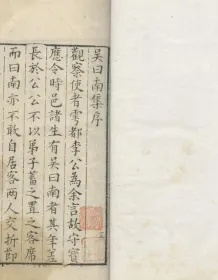 吴曰南集序
觀察使者雩都李公為余言故守寳
應令時邑諸生有吴曰南者其年蓋
長於公公不以弟子蓄之置之客席
而曰南亦不敢自居客兩人交折節